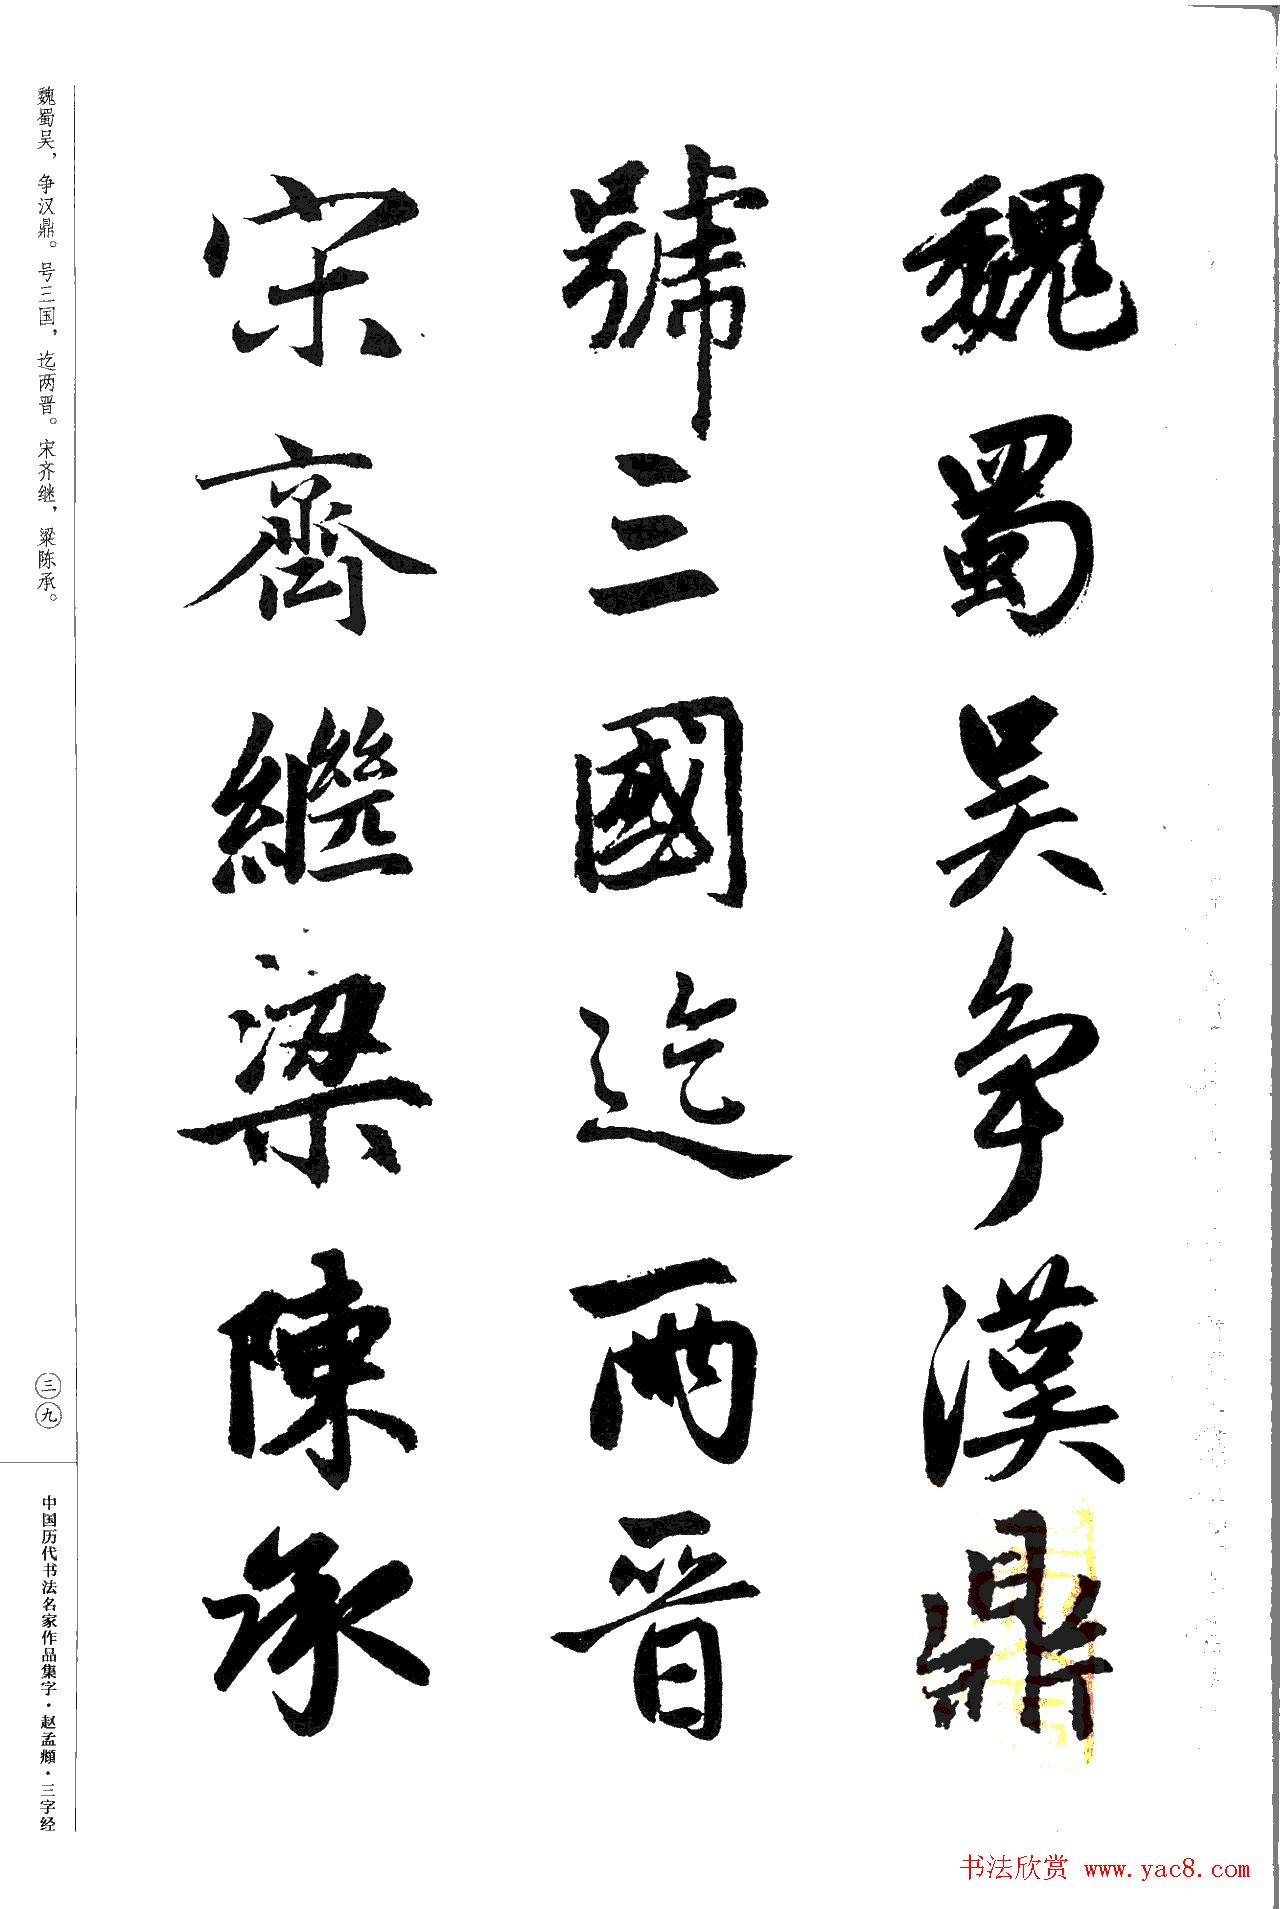 魏蜀吴争漢鼎
號三國迄兩晋
宋齊繼梁陳承
魏蜀吴，争汉鼎。号三国，迄两晋。宋齐继，粱陈承。
三九
中国历代书法名家作品集字·赵孟頫·三字经
书法欣赏 www.yac8.com